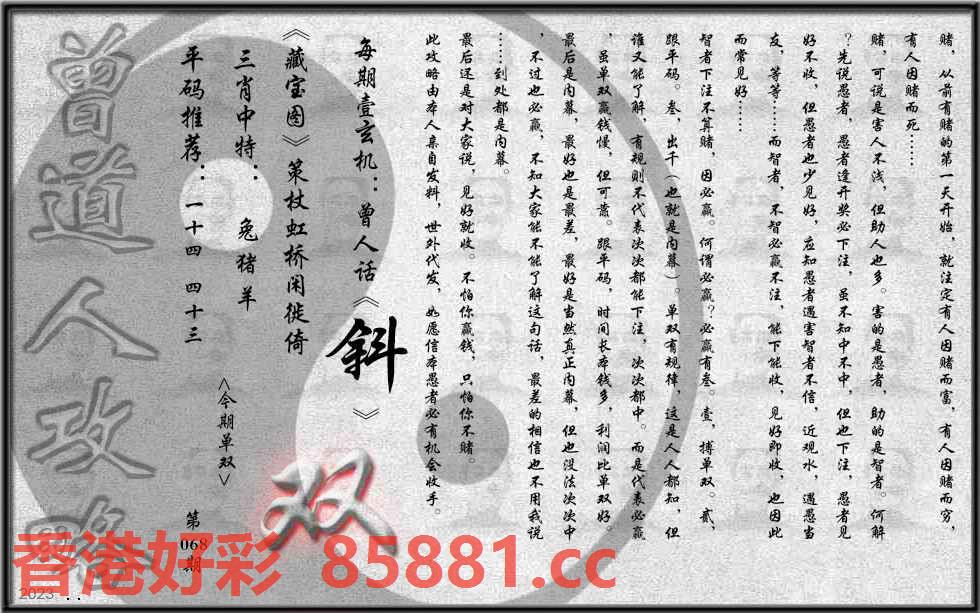 赌，从前有赌的第一天开始，就注定有人因赌而富，有人因赌而穷，
有人因赌而死……
赌，可说是害人不浅，但助人也多。害的是愚者，助的是智者。何解
？先说愚者，愚者逢开奖必下注，虽不知中不中，但也下注，愚者见
好不收，但愚者也少见好，应知愚者遇害智者不信，近观水，遇愚当
友，等等……而智者，不智必赢不注，能下能收，见好即收，也因此
而常见好……
智者下注不算赌，因必赢。何谓必赢？必赢有叁。壹，搏单双。贰，
跟平码。叁，出千（也就是内幕）。单双有规律，这是人人都知，但
谁又能了解，有规则不代表次次都能下注，次次都中。而是代表必赢
，虽单双赢钱慢，但可靠。跟平码，时间长本钱多，利润比单双好。
最后是内幕，最好也是最差，最好是当然真正内幕，但也没法次次中
，不过也必赢，不知大家能不能了解这句话，最差的相信也不用我说
……到处都是内幕。
最后还是对大家说，见好就收。不怕你赢钱，只怕你不赌。
此攻略由本人亲自发料，世外代发，如愿信本愚者必有机会收手。
每期壹玄机：曾人话《斜》
《藏宝图》策杖虹桥闲徙倚
三肖中特：兔猪羊
平码推荐：一十四 四十三
<今期单双>
双
第068期
曾道人攻略
香港好彩 85881.cc
2023